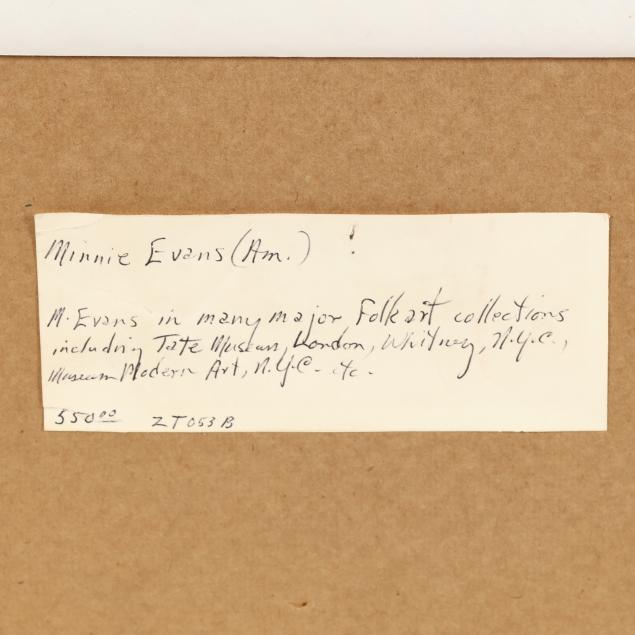 Minnie Evans (Am.) !
M. Evans in many major Folk art collections
including Tate Museum, London, Whitney, N.Y.C.,
Museum Modern Art, N.Y.C. etc.
550.00 ZT053B